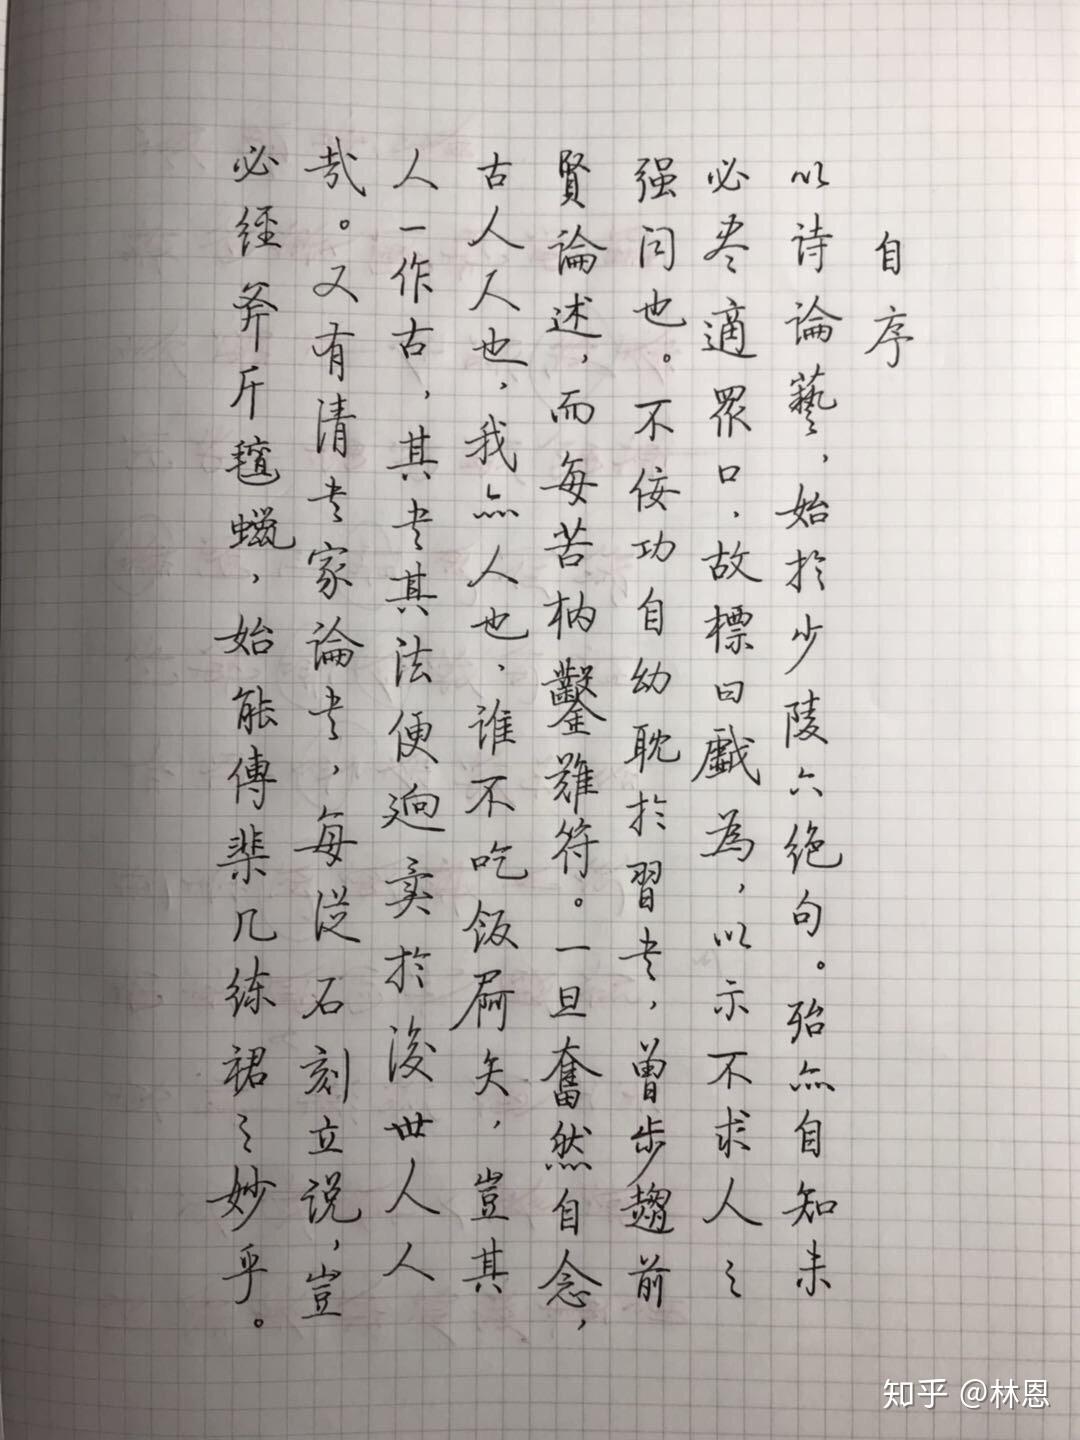 自序
以诗論藝，始於少陵六绝句。殆亦自知未
必尽適眾口，故標曰戲為，以示不求人之
强同也。不佞功自幼耽於習书，曾步趨前
賢論述，而每苦枘鑿難符。一旦奮然自念，
古人人也，我亦人也，谁不吃饭屙矢，豈其
人一作古，其书其法便逈異於後世人人
哉。又有清书家論书，每従石刻立説，豈
必經斧斤氊蠟，始能傳棐几练裙之妙乎。
知乎 @林恩